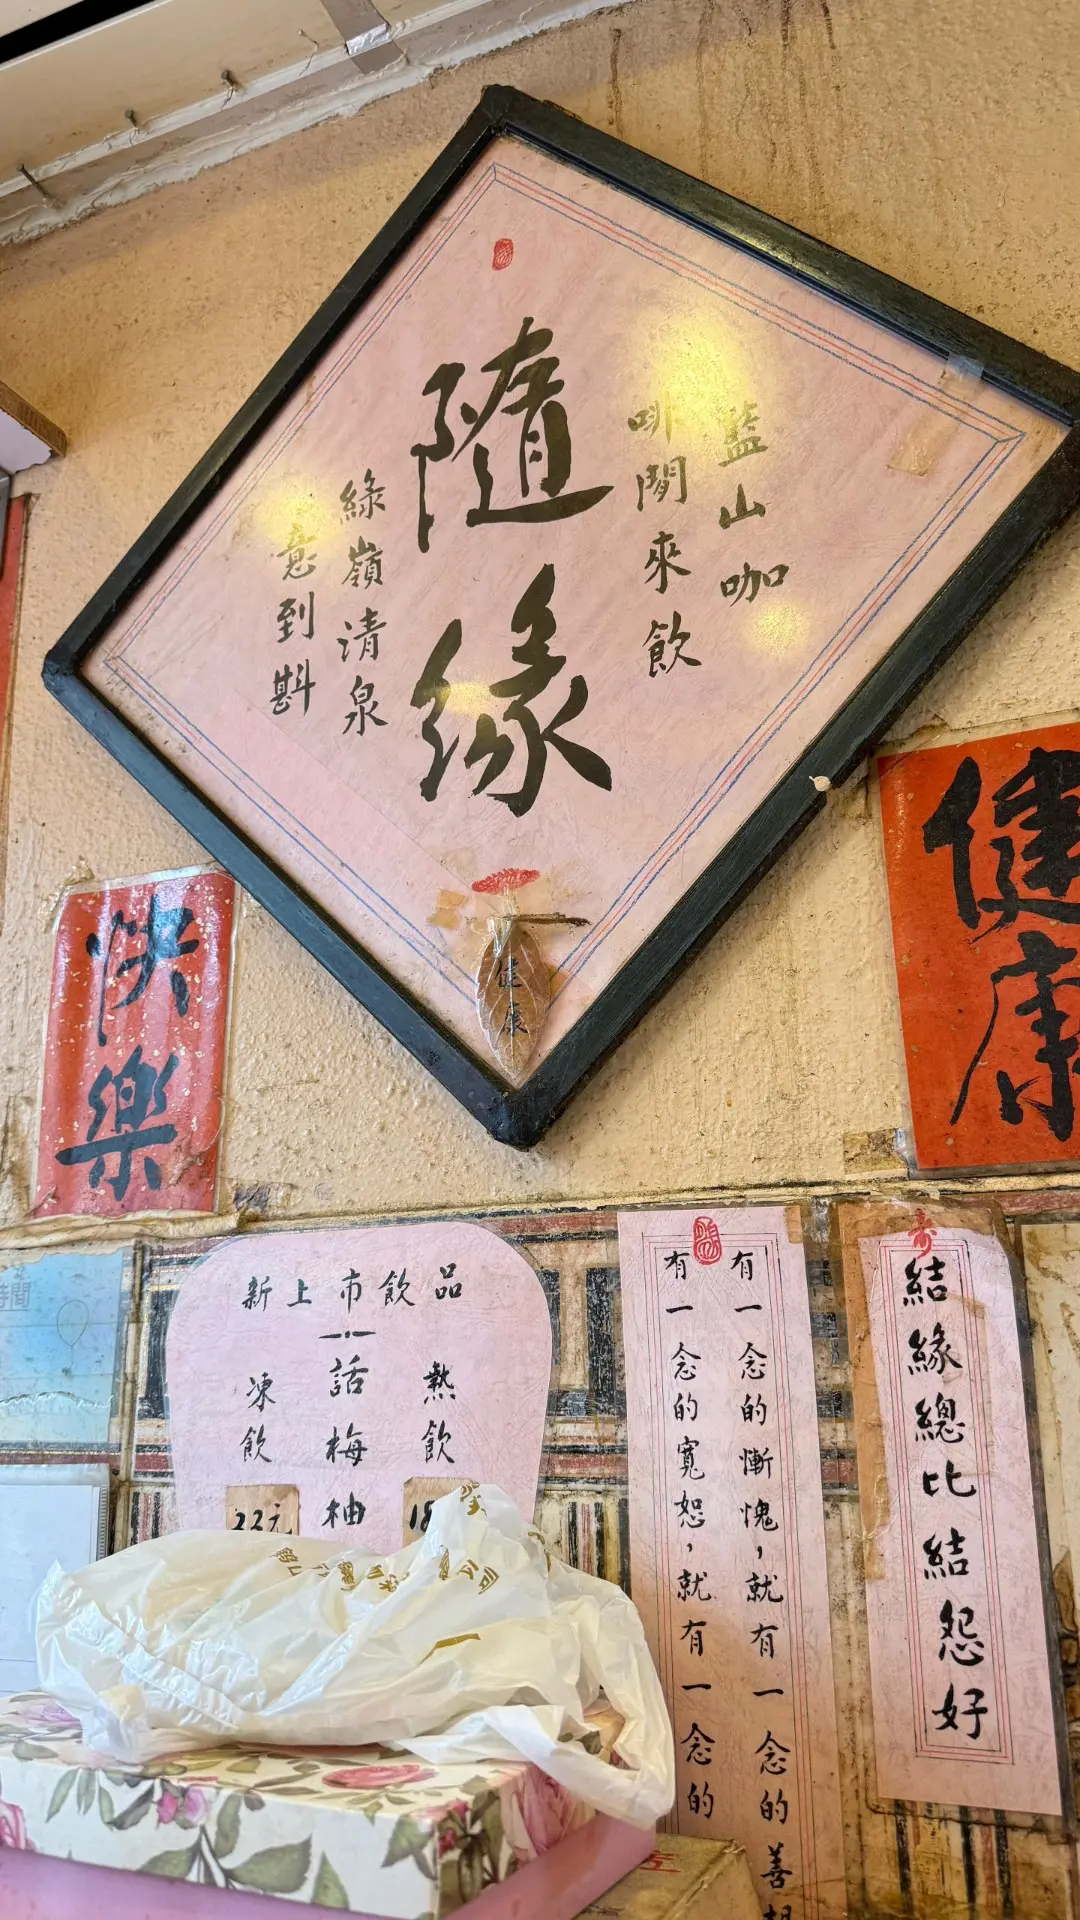 隨緣
藍山咖
啡閒來飲
綠嶺清泉
意到斟
健康
快樂
健康
新上市飲品
熱飲
18
話梅柚
凍飲
22元
有一念的慚愧，就有一念的善
有一念的寬恕，就有一念的
結緣總比結怨好